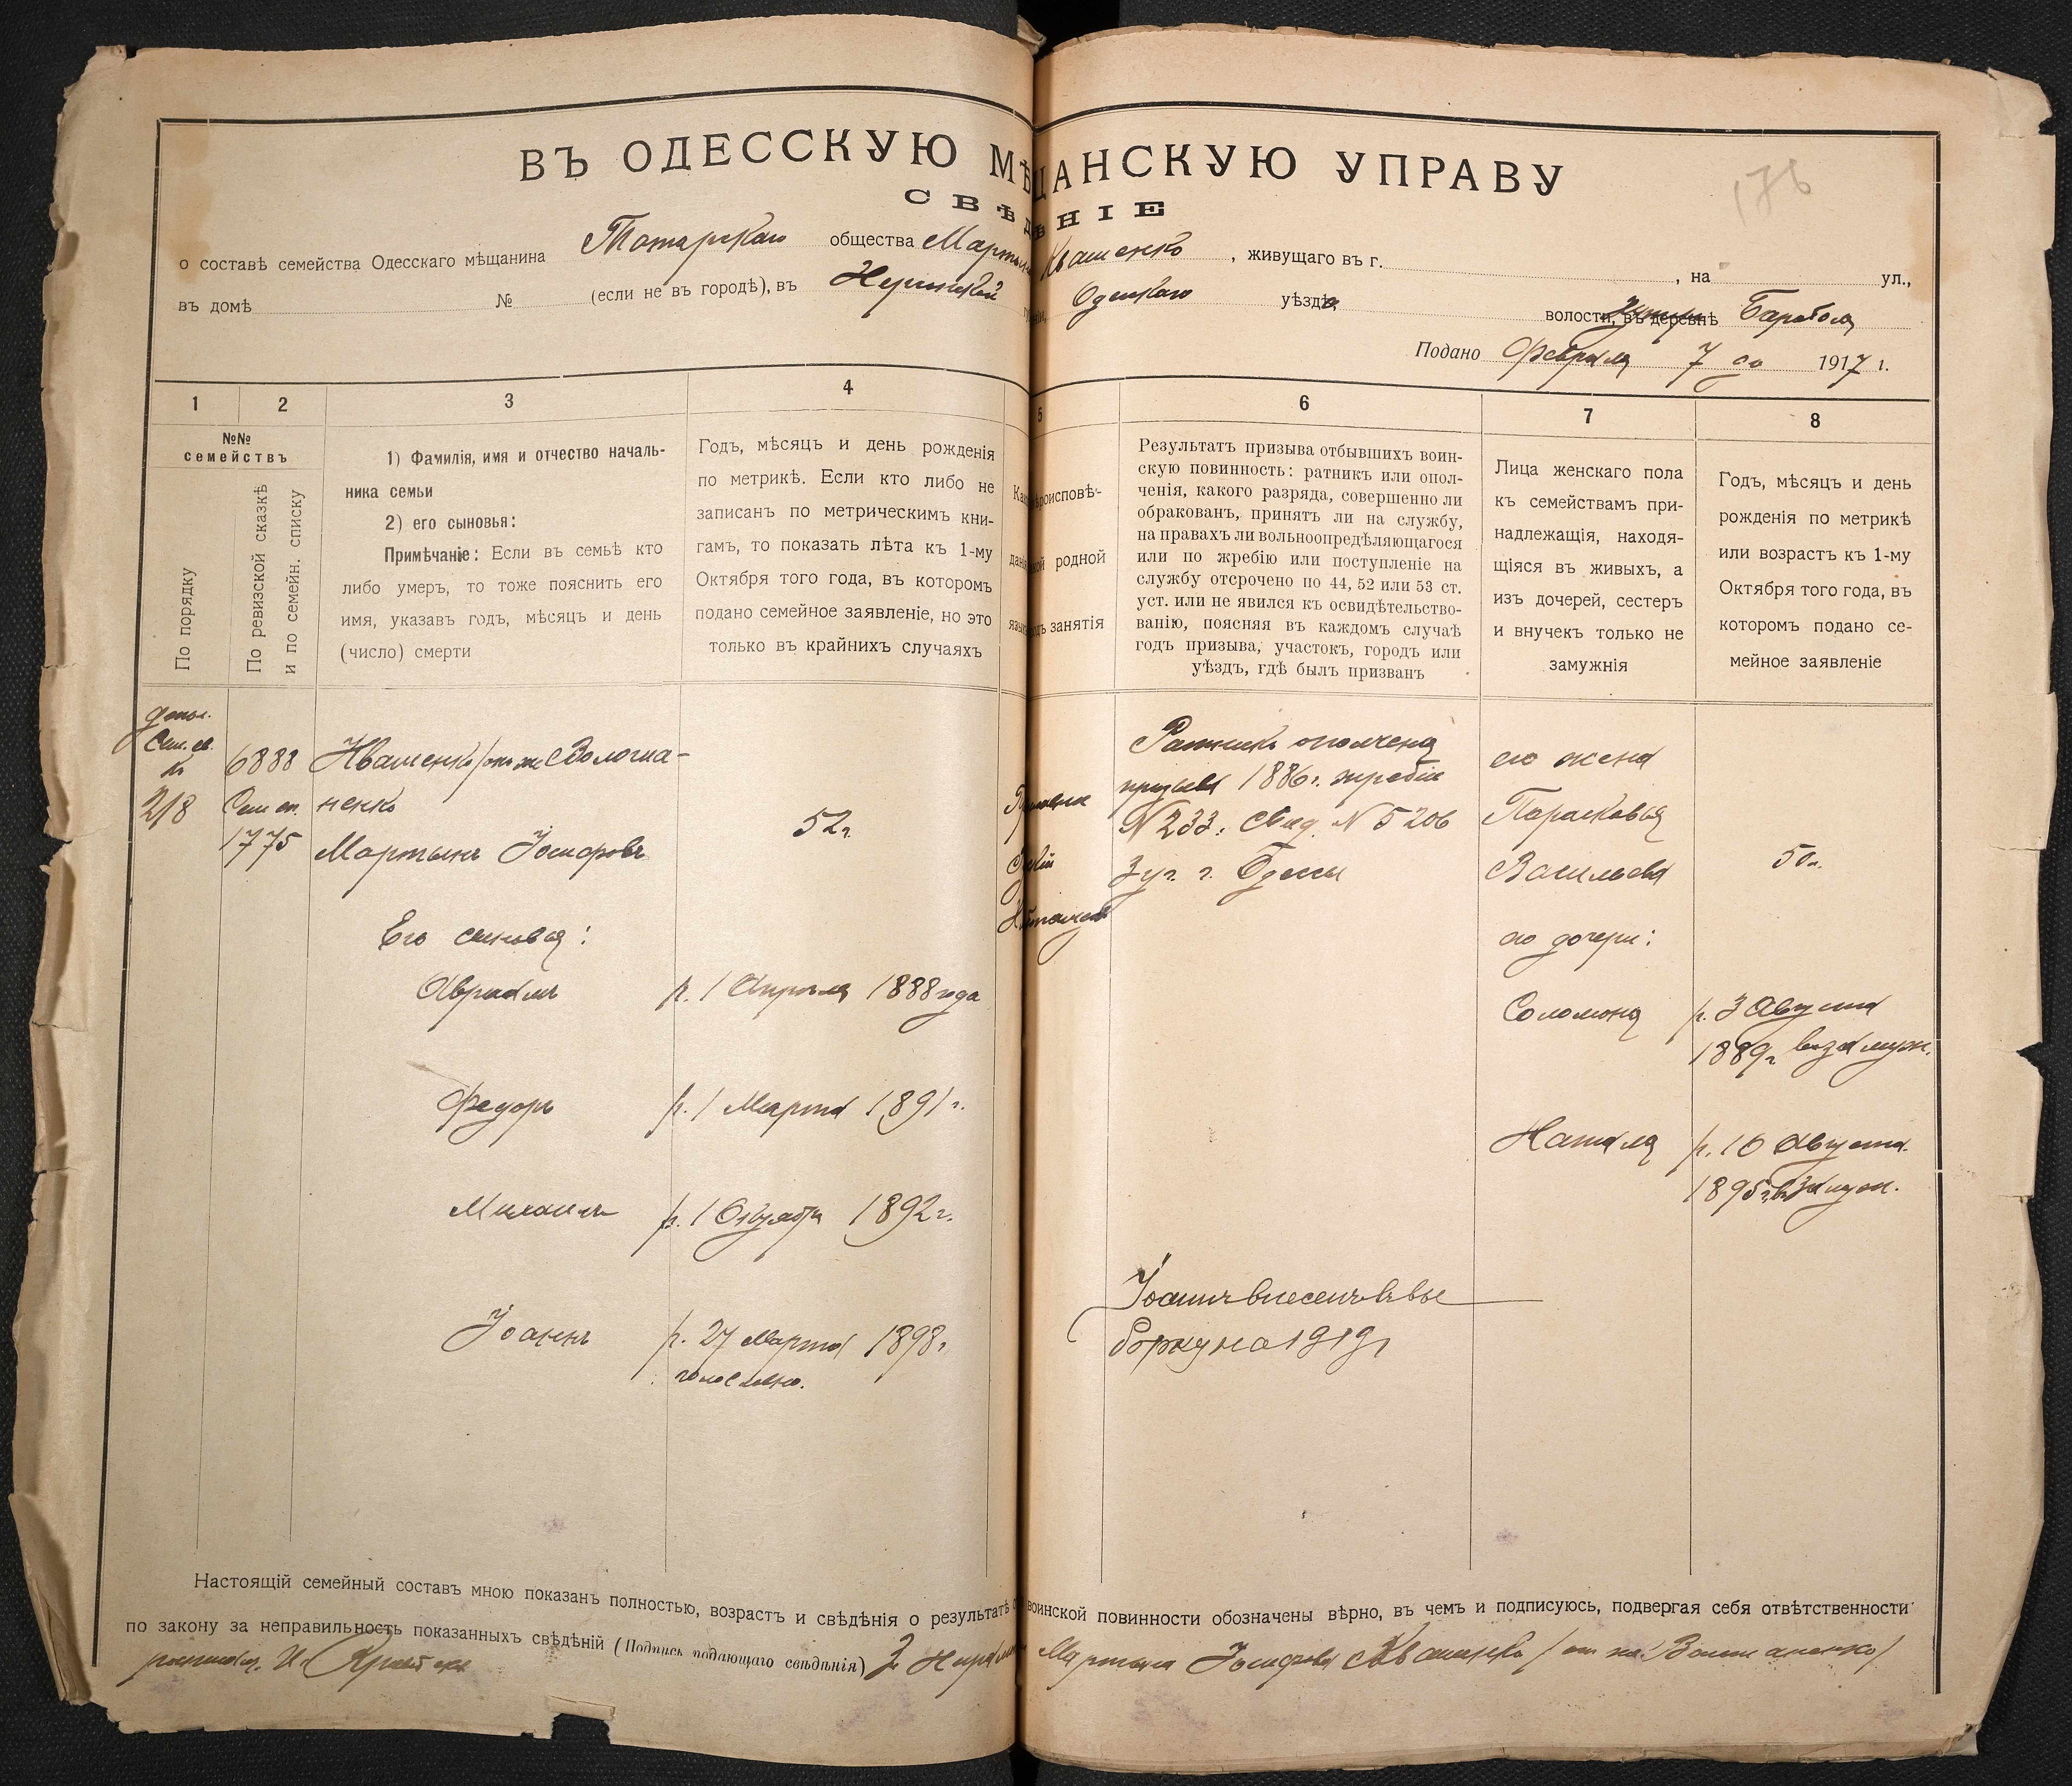 ВЪ ОДЕССКУЮ МѢЩАНСКУЮ УПРАВУ
176
СВѢДѢНІЕ
о составѣ семейства Одесскаго мѣщанина Татарскаго общества Мартына Квашенко, живущаго въ г. , на ул.,
въ домѣ № (если не въ городѣ), въ губерніи, Одесскаго уѣзда волости, въ деревнѣ Барабоя
Подано Февраля 7 го 1917 г.
1 2 3 4 5 6 7 8
№№
семействъ
По порядку
По ревизской сказкѣ
и по семейн. списку
1) Фамилія, имя и отчество началь-
ника семьи
2) его сыновья:
Примѣчаніе: Если въ семьѣ кто
либо умеръ, то тоже пояснить его
имя, указавъ годъ, мѣсяцъ и день
(число) смерти
Годъ, мѣсяцъ и день рожденія
по метрикѣ. Если кто либо не
записанъ по метрическимъ кни-
гамъ, то показать лѣта къ 1-му
Октября того года, въ которомъ
подано семейное заявленіе, но это
только въ крайнихъ случаяхъ
вѣроисповѣ-
родной
занятія
Результатъ призыва отбывшихъ воин-
скую повинность: ратникъ или опол-
ченія, какого разряда, совершенно ли
обракованъ, принятъ ли на службу,
на правахъ ли вольноопредѣляющагося
или по жребію или поступленіе на
службу отсрочено по 44, 52 или 53 ст.
уст. или не явился къ освидѣтельство-
ванію, поясняя въ каждомъ случаѣ
годъ призыва, участокъ, городъ или
уѣздъ, гдѣ былъ призванъ
Лица женскаго пола
къ семействамъ при-
надлежащія, находя-
щіяся въ живыхъ, а
изъ дочерей, сестеръ
и внучекъ только не
замужнія
Годъ, мѣсяцъ и день
рожденія по метрикѣ
или возрастъ къ 1-му
Октября того года, въ
которомъ подано се-
мейное заявленіе
218
6888
Сем сп.
1775
Квашенко /онъ же
ненко
Мартынъ Іосифовъ
52 г.
Его сыновья:
Авраамъ р. 1 Апрѣля 1888 года
Федоръ р. 1 Марта 1891 г.
Михаилъ р. 1 Октября 1892 г.
Іоаннъ р. 27 Марта 1898 г.
Ратникъ ополченія
призыва 1886 г. жребій
N 233. Свид. N 5206
3 уч. г. Одессы
Іоаннъ внесенъ въ вы
борку на 1919 г
его жена
Параскевья
Васильева
50 л.
его дочери:
Соломонія р. 3 Августа
1889 г. въ замуж.
Наталя р. 16 Августа.
1895 г. въ замуж.
Настоящій семейный составъ мною показанъ полностью, возрастъ и свѣдѣнія о результатѣ воинской повинности обозначены вѣрно, въ чемъ и подписуюсь, подвергая себя отвѣтственности
по закону за неправильность показанныхъ свѣдѣній (Подпись подающаго свѣдѣнія) Мартына Іосифова Квашенко /он же